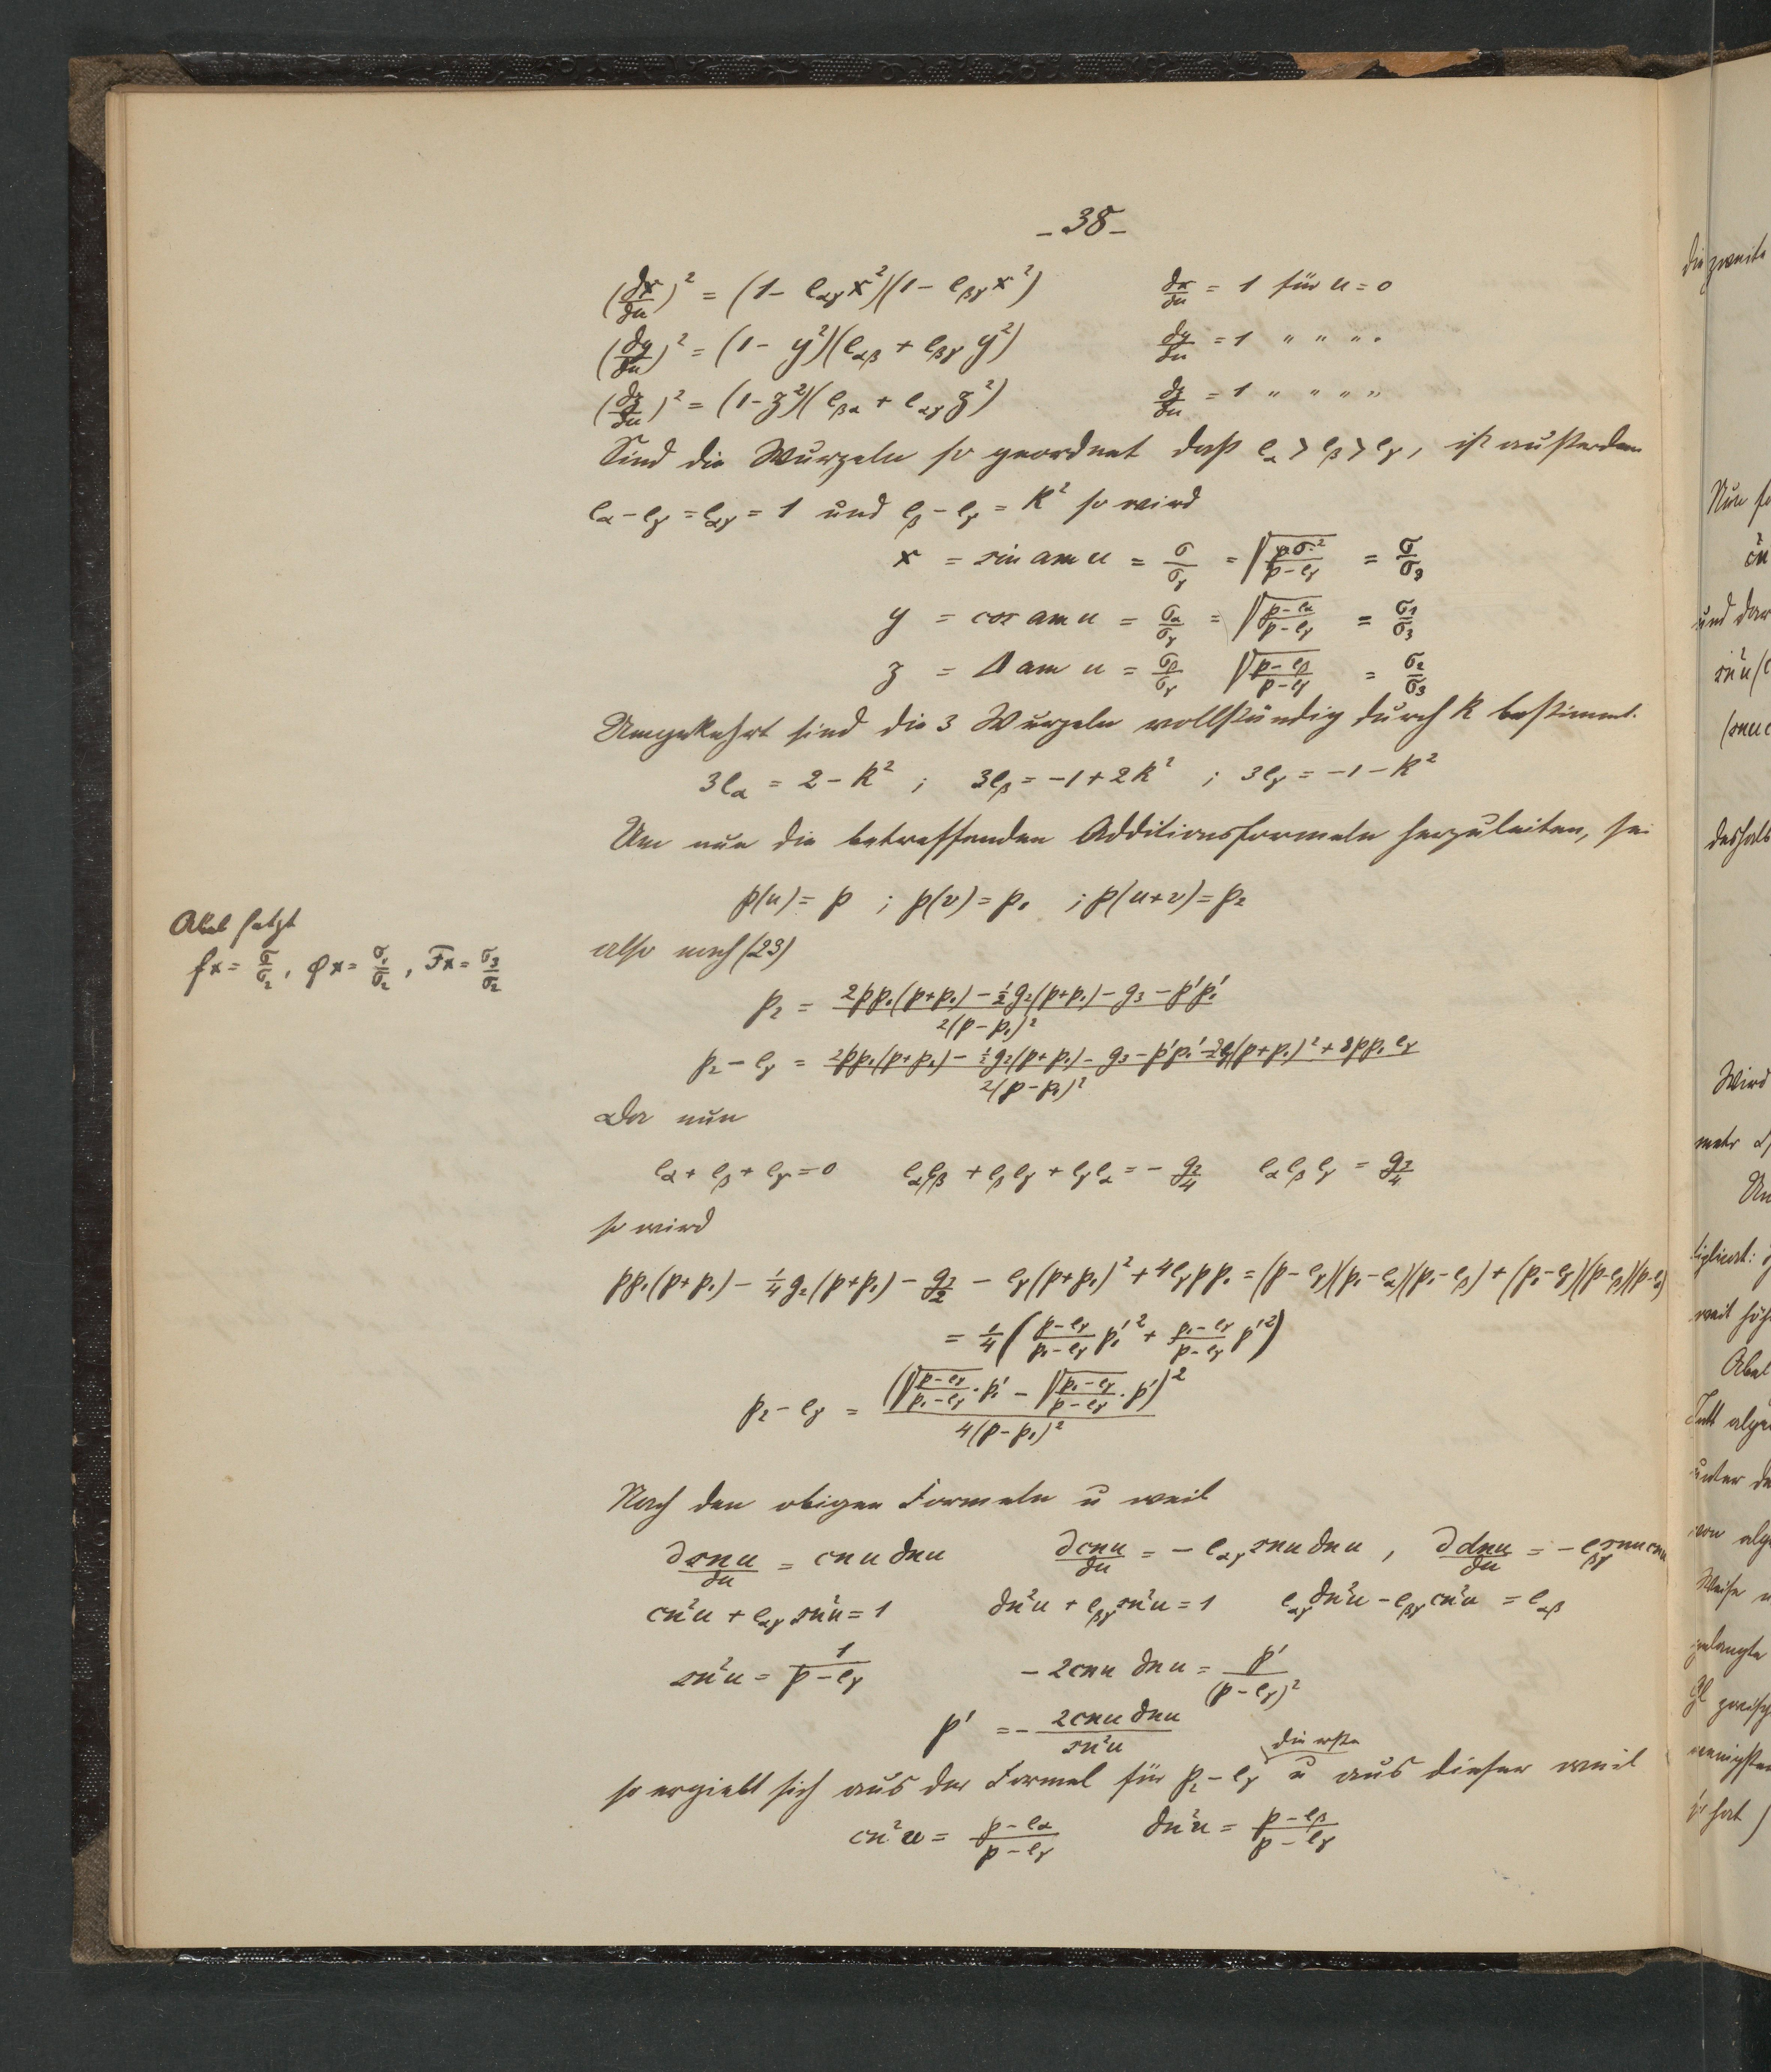 - 38 -
(dx/du)² = (1 - e_αγ x²)(1 - e_βγ x²)   dx/du = 1 für u = 0
(dy/du)² = (1 - y²)(e_αβ + e_βγ y²)   dy/du = 1 " " " "
(dz/du)² = (1 - z²)(e_βα + e_αγ z²)   dz/du = 1 " " " "
Sind die Wurzeln so geordnet daß e_α > e_β > e_γ, ist außerdem
e_α - e_γ = e_αγ = 1 und e_β - e_γ = k² so wird
x = sin am u = σ/σ_γ = √(/(p - e_γ)) = σ/σ_3
y = cos am u = σ_α/σ_γ = √((p - e_α)/(p - e_γ)) = σ_1/σ_3
z = Δ am u = σ_β/σ_γ √((p - e_β)/(p - e_γ)) = σ_2/σ_3
Umgekehrt sind die 3 Wurzeln vollständig durch k bestimmt.
3e_α = 2 - k² ; 3e_β = -1 + 2k² ; 3e_γ = -1 - k²
Um nun die betreffenden Additionsformeln herzuleiten, sei
p(u) = p ; p(v) = p_1 ; p(u+v) = p_2
Abel setzt
fx = σ/σ_2, φx = σ_1/σ_2, Fx = σ_3/σ_2
also nach (23)
p_2 = (2pp_1(p+p_1) - ½g_2(p+p_1) - g_3 - p'p_1')/(2(p-p_1)²)
p_2 - e_γ = (2pp_1(p+p_1) - ½g_2(p+p_1) - g_3 - p'p_1' - 2e_γ(p+p_1)² + 8pp_1e_γ)/(2(p-p_1)²)
Da nun
e_α + e_β + e_γ = 0   e_αe_β + e_βe_γ + e_γe_α = - g_2/4   e_αe_βe_γ = g_3/4
so wird
pp_1(p+p_1) - ¼g_2(p+p_1) - g_3/2 - e_γ(p+p_1)² + 4e_γpp_1 = (p-e_γ)(p_1-e_α)(p_1-e_β) + (p_1-e_γ)(p-e_β)(p-e_α)
= ¼((p-e_γ)/(p_1-e_γ) p_1'² + (p_1-e_γ)/(p-e_γ) p'²)
p_2 - e_γ = (√((p-e_γ)/(p_1-e_γ))·p_1' - √((p_1-e_γ)/(p-e_γ))·p')²/(4(p-p_1)²)
Nach den obigen Formeln u weil
∂snu/∂u = cnu dnu   ∂cnu/∂u = - e_αγ snu dnu , ∂dnu/∂u = - e_βγ snu cnu
cn²u + e_αγ sn²u = 1   dn²u + e_βγ sn²u = 1   e_αγ dn²u - e_βγ cn²u = e_αβ
sn²u = 1/(p - e_γ)   - 2cnu dnu = p'/(p - e_γ)²
p' = - 2cnu dnu/sn²u
die erste
so ergiebt sich aus der Formel für p_2 - e_γ u aus dieser weil
cn²u = (p - e_α)/(p - e_γ)   dn²u = (p - e_β)/(p - e_γ)
die zweite
und dar
deshalb
Wird
mehr
Abel
unter
Weise
gelangte